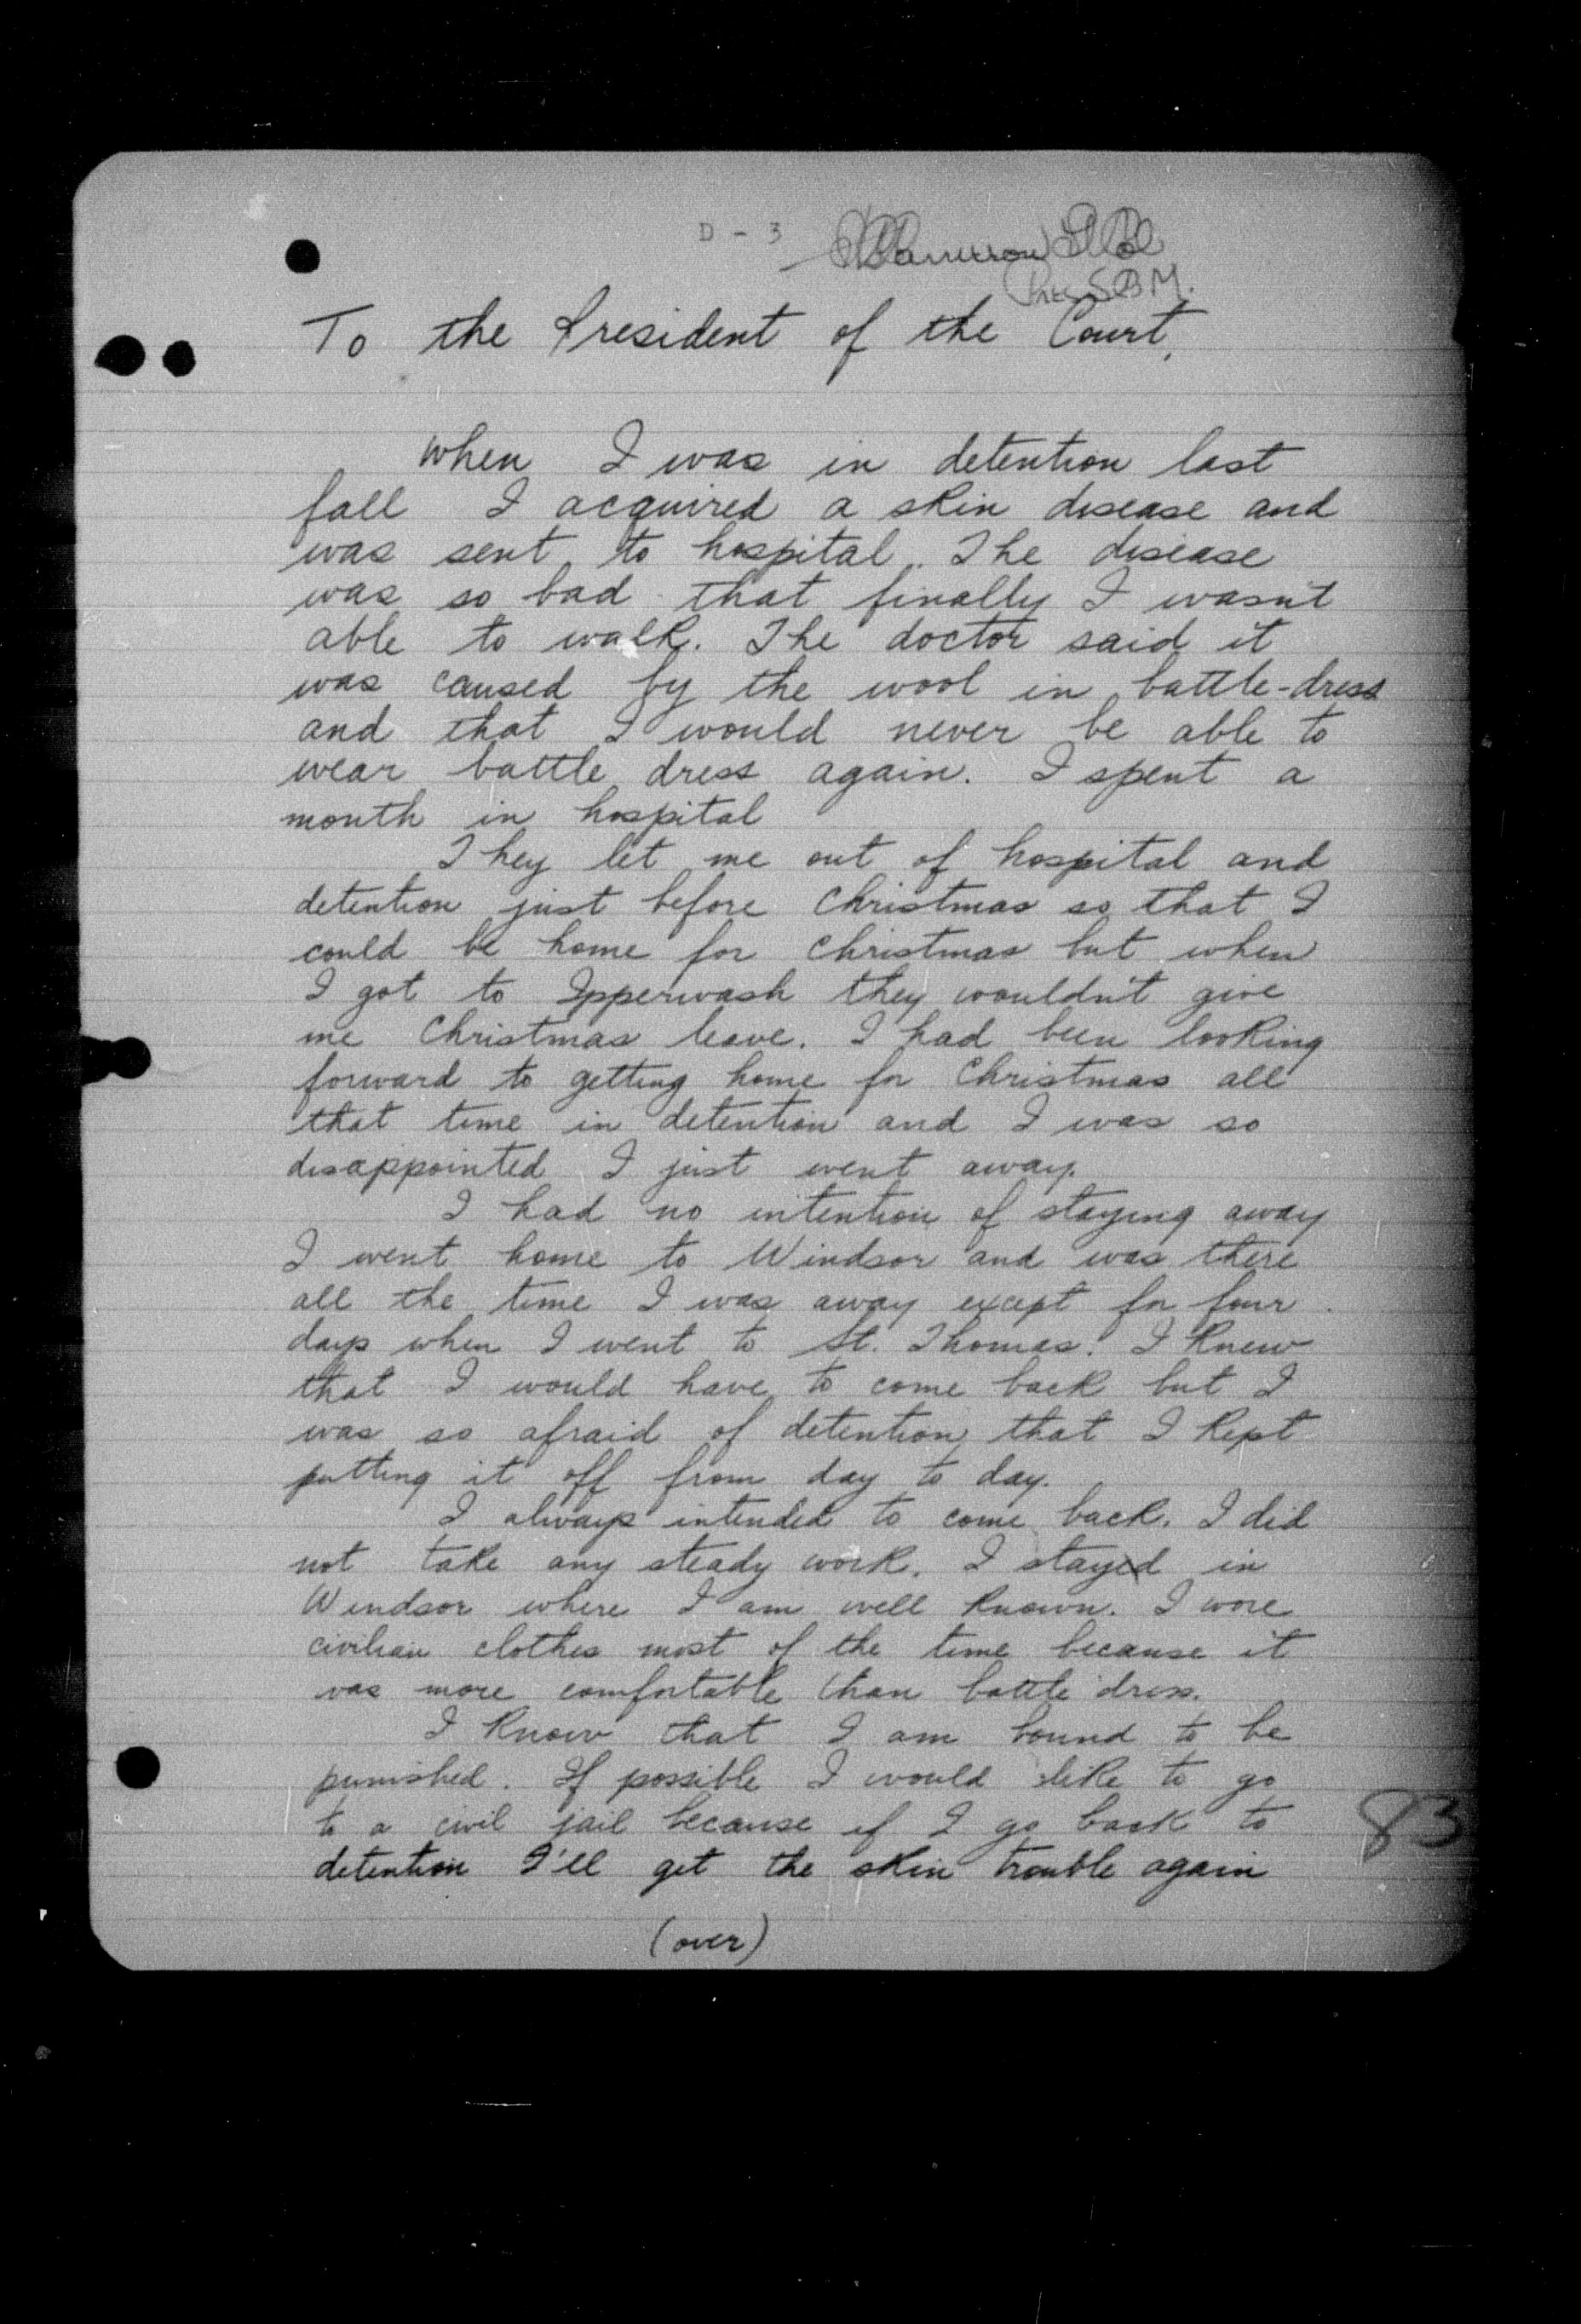 D - 3
Pres S.B.M.
To the President of the Court,
When I was in detention last
fall I acquired a skin disease and
was sent to hospital. The disease
was so bad that finally I wasn't
able to walk. The doctor said it
was caused by the wool in battle-dress
and that I would never be able to
wear battle dress again. I spent a
month in hospital
They let me out of hospital and
detention just before Christmas so that I
could be home for Christmas but when
I got to Ipperwash they wouldn't give
me Christmas leave. I had been looking
forward to getting home for Christmas all
that time in detention and I was so
disappointed I just went away.
I had no intention of staying away
I went home to Windsor and was there
all the time I was away except for four
days when I went to St. Thomas. I knew
that I would have to come back but I
was so afraid of detention that I kept
putting it off from day to day.
I always intended to come back. I did
not take any steady work. I stayed in
Windsor where I am well known. I wore
civilian clothes most of the time because it
was more comfortable than battle dress.
I know that I am bound to be
punished. If possible I would like to go
to a civil jail because if I go back to
detention I'll get the skin trouble again
83
(over)